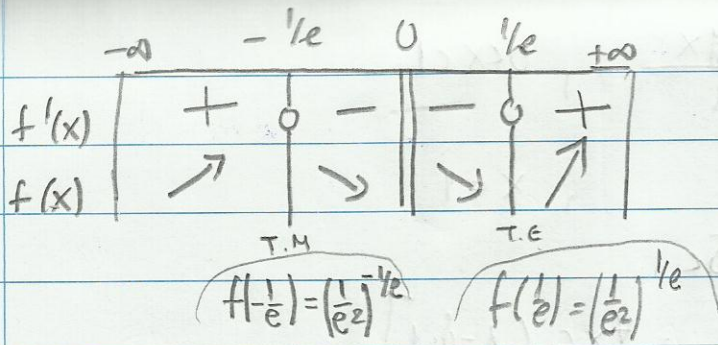 -∞ - 1/e 0 1/e +∞
f'(x) + 0 - - 0 +
f(x) ↗ ↘ ↘ ↗
T.M T.E
f(-1/e) = (1/e²)^-1/e f(1/e) = (1/e²)^1/e